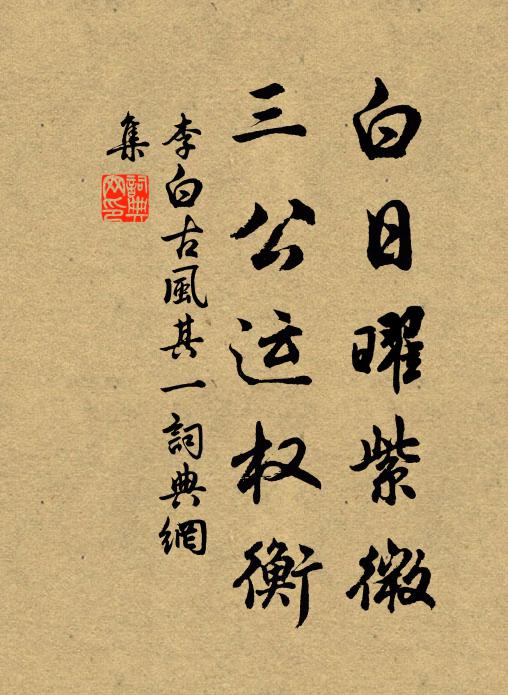 白日曜紫微
三公运权衡
李白古風其一詞典網
集
詞典网印